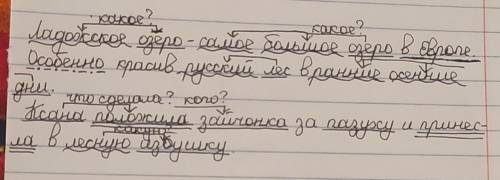 какое? какое?
Ладожское озеро - самое большое озеро в Европе.
Особенно красив русский лес в ранние осенние
дни.
что сделала? кого?
Ксана положила зайчонка за пазуху и принес-
какую?
ла в лесную избушку